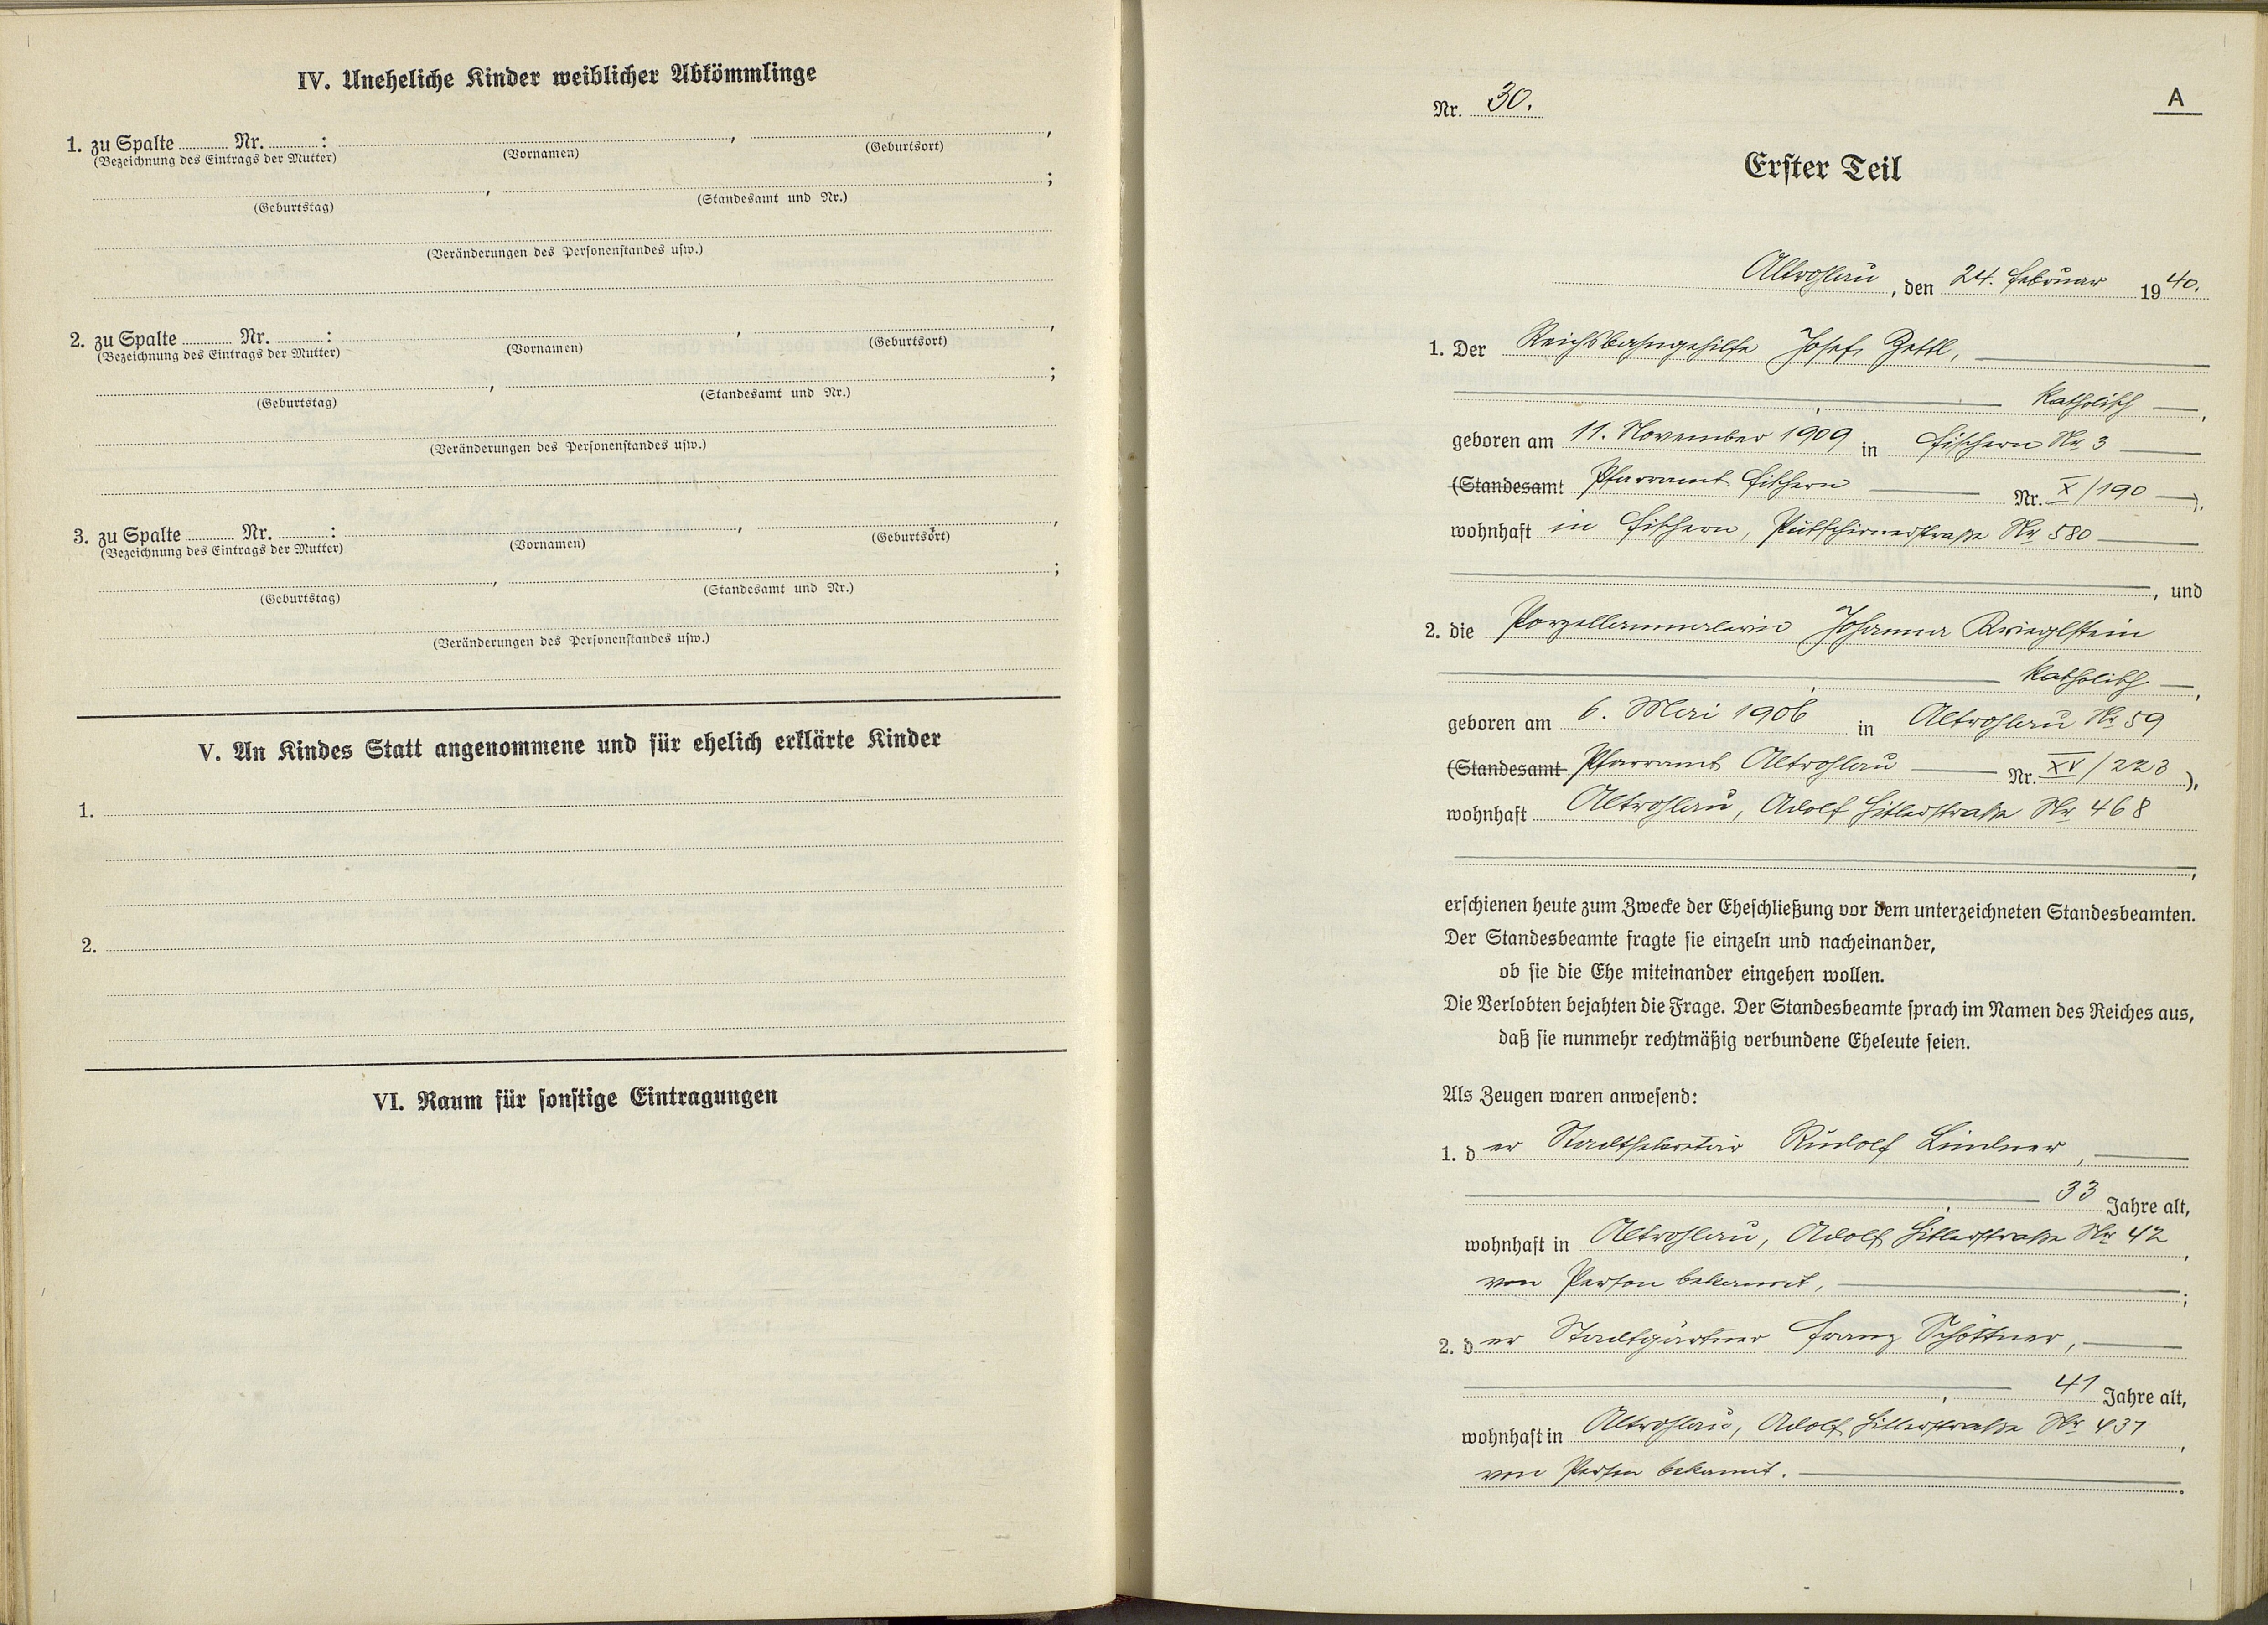 IV. Uneheliche Kinder weiblicher Abkömmlinge
1. zu Spalte Nr. : , ,
(Bezeichnung des Eintrags der Mutter) (Vornamen) (Geburtsort)
, ;
(Geburtstag) (Standesamt und Nr.)
(Veränderungen des Personenstandes usw.)
2. zu Spalte Nr. : , ,
(Bezeichnung des Eintrags der Mutter) (Vornamen) (Geburtsort)
, ;
(Geburtstag) (Standesamt und Nr.)
(Veränderungen des Personenstandes usw.)
3. zu Spalte Nr. : , ,
(Bezeichnung des Eintrags der Mutter) (Vornamen) (Geburtsort)
, ;
(Geburtstag) (Standesamt und Nr.)
(Veränderungen des Personenstandes usw.)
V. An Kindes Statt angenommene und für ehelich erklärte Kinder
1.
2.
VI. Raum für sonstige Eintragungen
A
Nr. 30.
Erster Teil
Altrohlau, den 24. Februar 1940.
1. Der Reichsbahngehilfe Josef Zettl,
katholisch,
geboren am 11. November 1909 in Fischern Nr. 3
(Standesamt Pfarramt Fischern Nr. X/190),
wohnhaft in Fischern, Putschirnerstraße Nr. 580
, und
2. die Porzellanmalerin Johanna Krieglstein
katholisch,
geboren am 6. Mai 1906 in Altrohlau Nr. 59
(Standesamt Pfarramt Altrohlau Nr. XV/223),
wohnhaft Altrohlau, Adolf Hitlerstraße Nr. 468
,
erschienen heute zum Zwecke der Eheschließung vor dem unterzeichneten Standesbeamten.
Der Standesbeamte fragte sie einzeln und nacheinander,
ob sie die Ehe miteinander eingehen wollen.
Die Verlobten bejahten die Frage. Der Standesbeamte sprach im Namen des Reiches aus,
daß sie nunmehr rechtmäßig verbundene Eheleute seien.
Als Zeugen waren anwesend:
1. der Stadtsekretär Rudolf Lindner,
, 33 Jahre alt,
wohnhaft in Altrohlau, Adolf Hitlerstraße Nr. 42,
von Person bekannt, ;
2. der Stadtgärtner Franz Schöttner,
, 41 Jahre alt,
wohnhaft in Altrohlau, Adolf Hitlerstraße Nr. 431,
von Person bekannt.